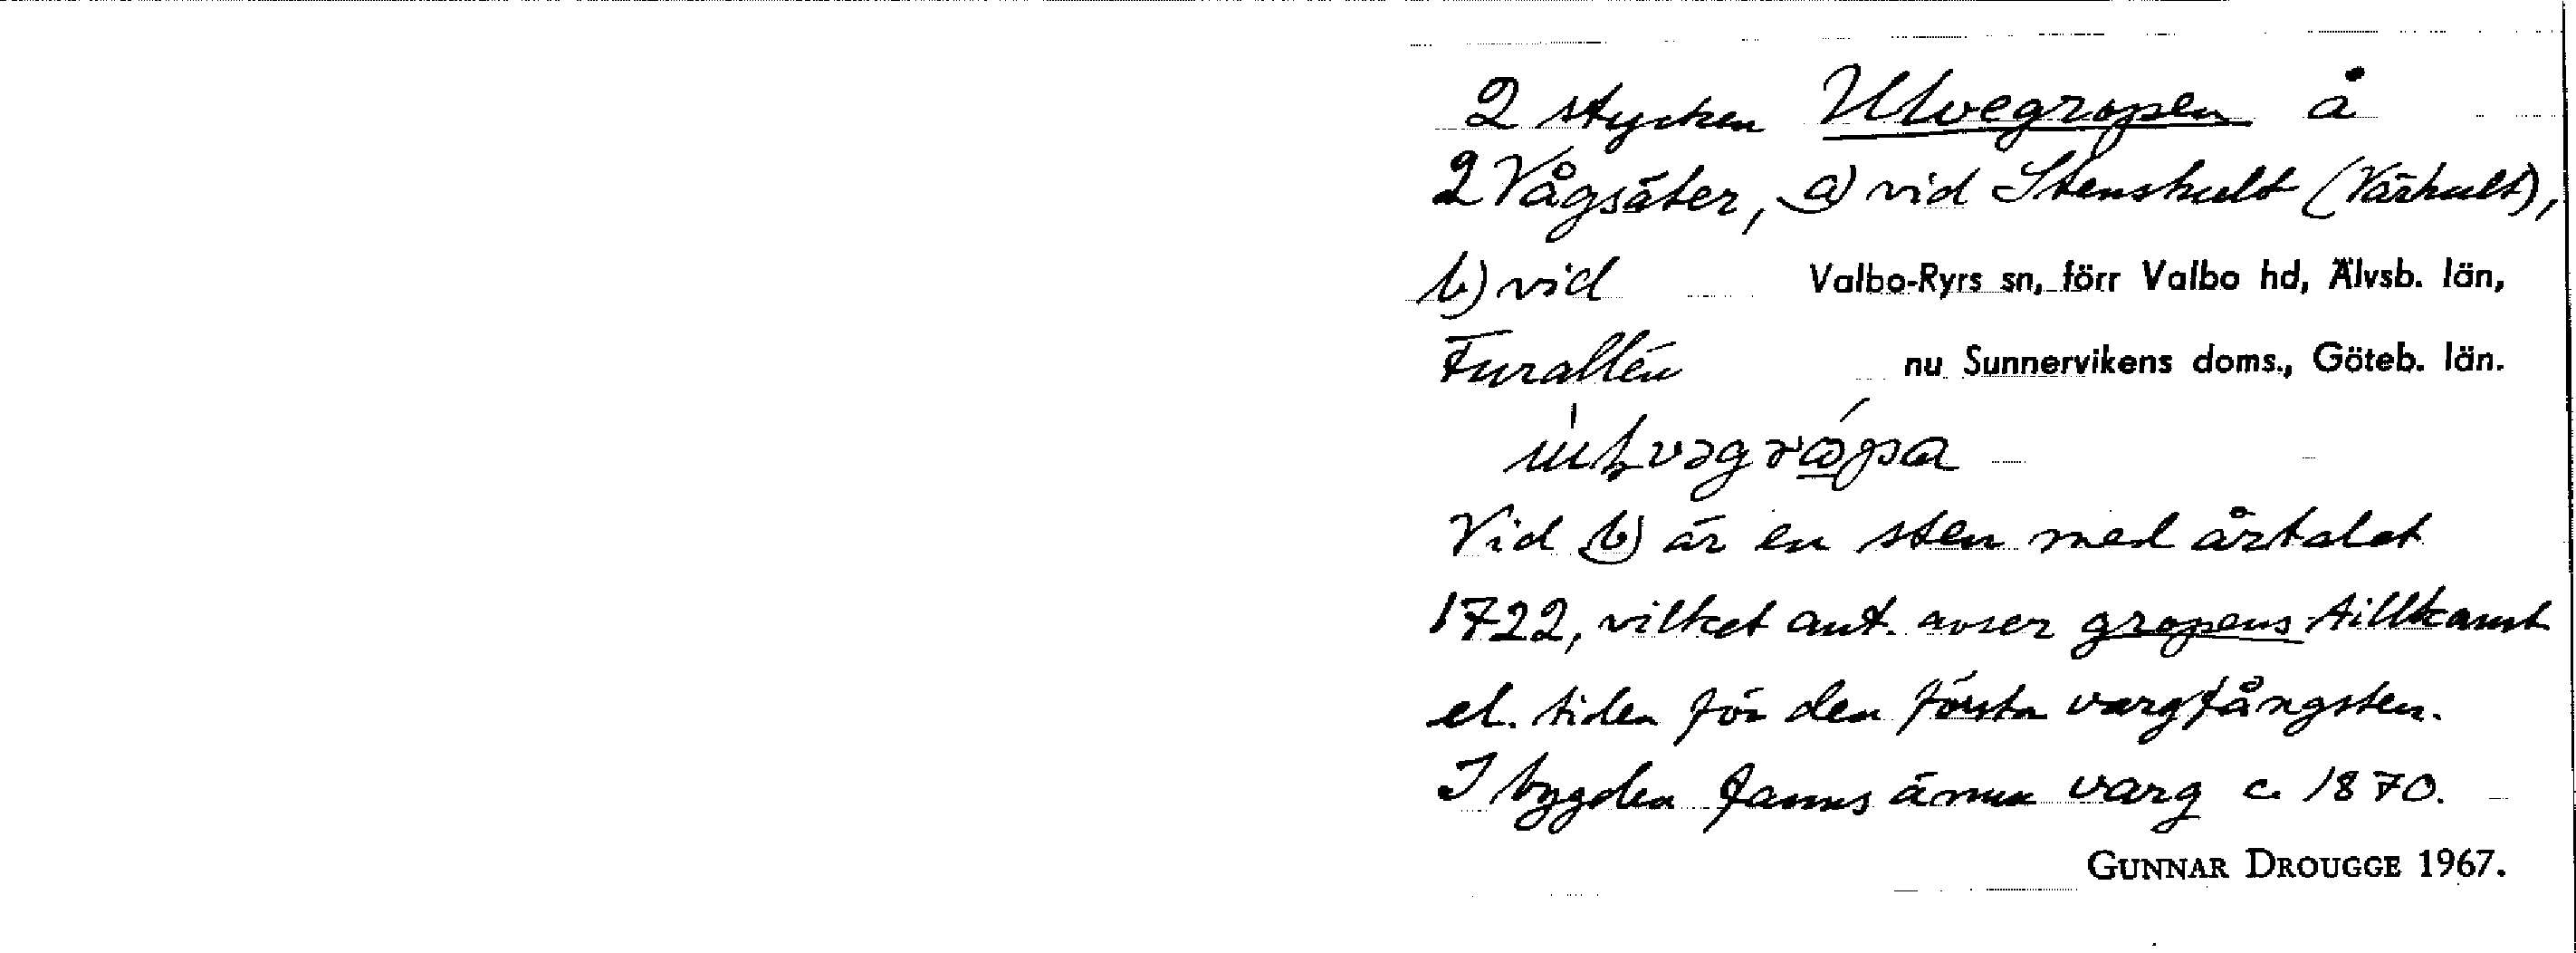 2 stycken Ulvegropen å
2 Vågsäter, a) vid Stenshult (Värhult),
b) vid Valbo-Ryrs sn, förr Valbo hd, Älvsb. län,
Furallén nu Sunnervikens doms., Göteb. län.
Vid b) är en sten med årtalet
1722, vilket ant. avser gropens tillkomst
el. tiden för den första vargfångsten.
I bygden fanns ännu varg c. 1870.
GUNNAR DROUGGE 1967.